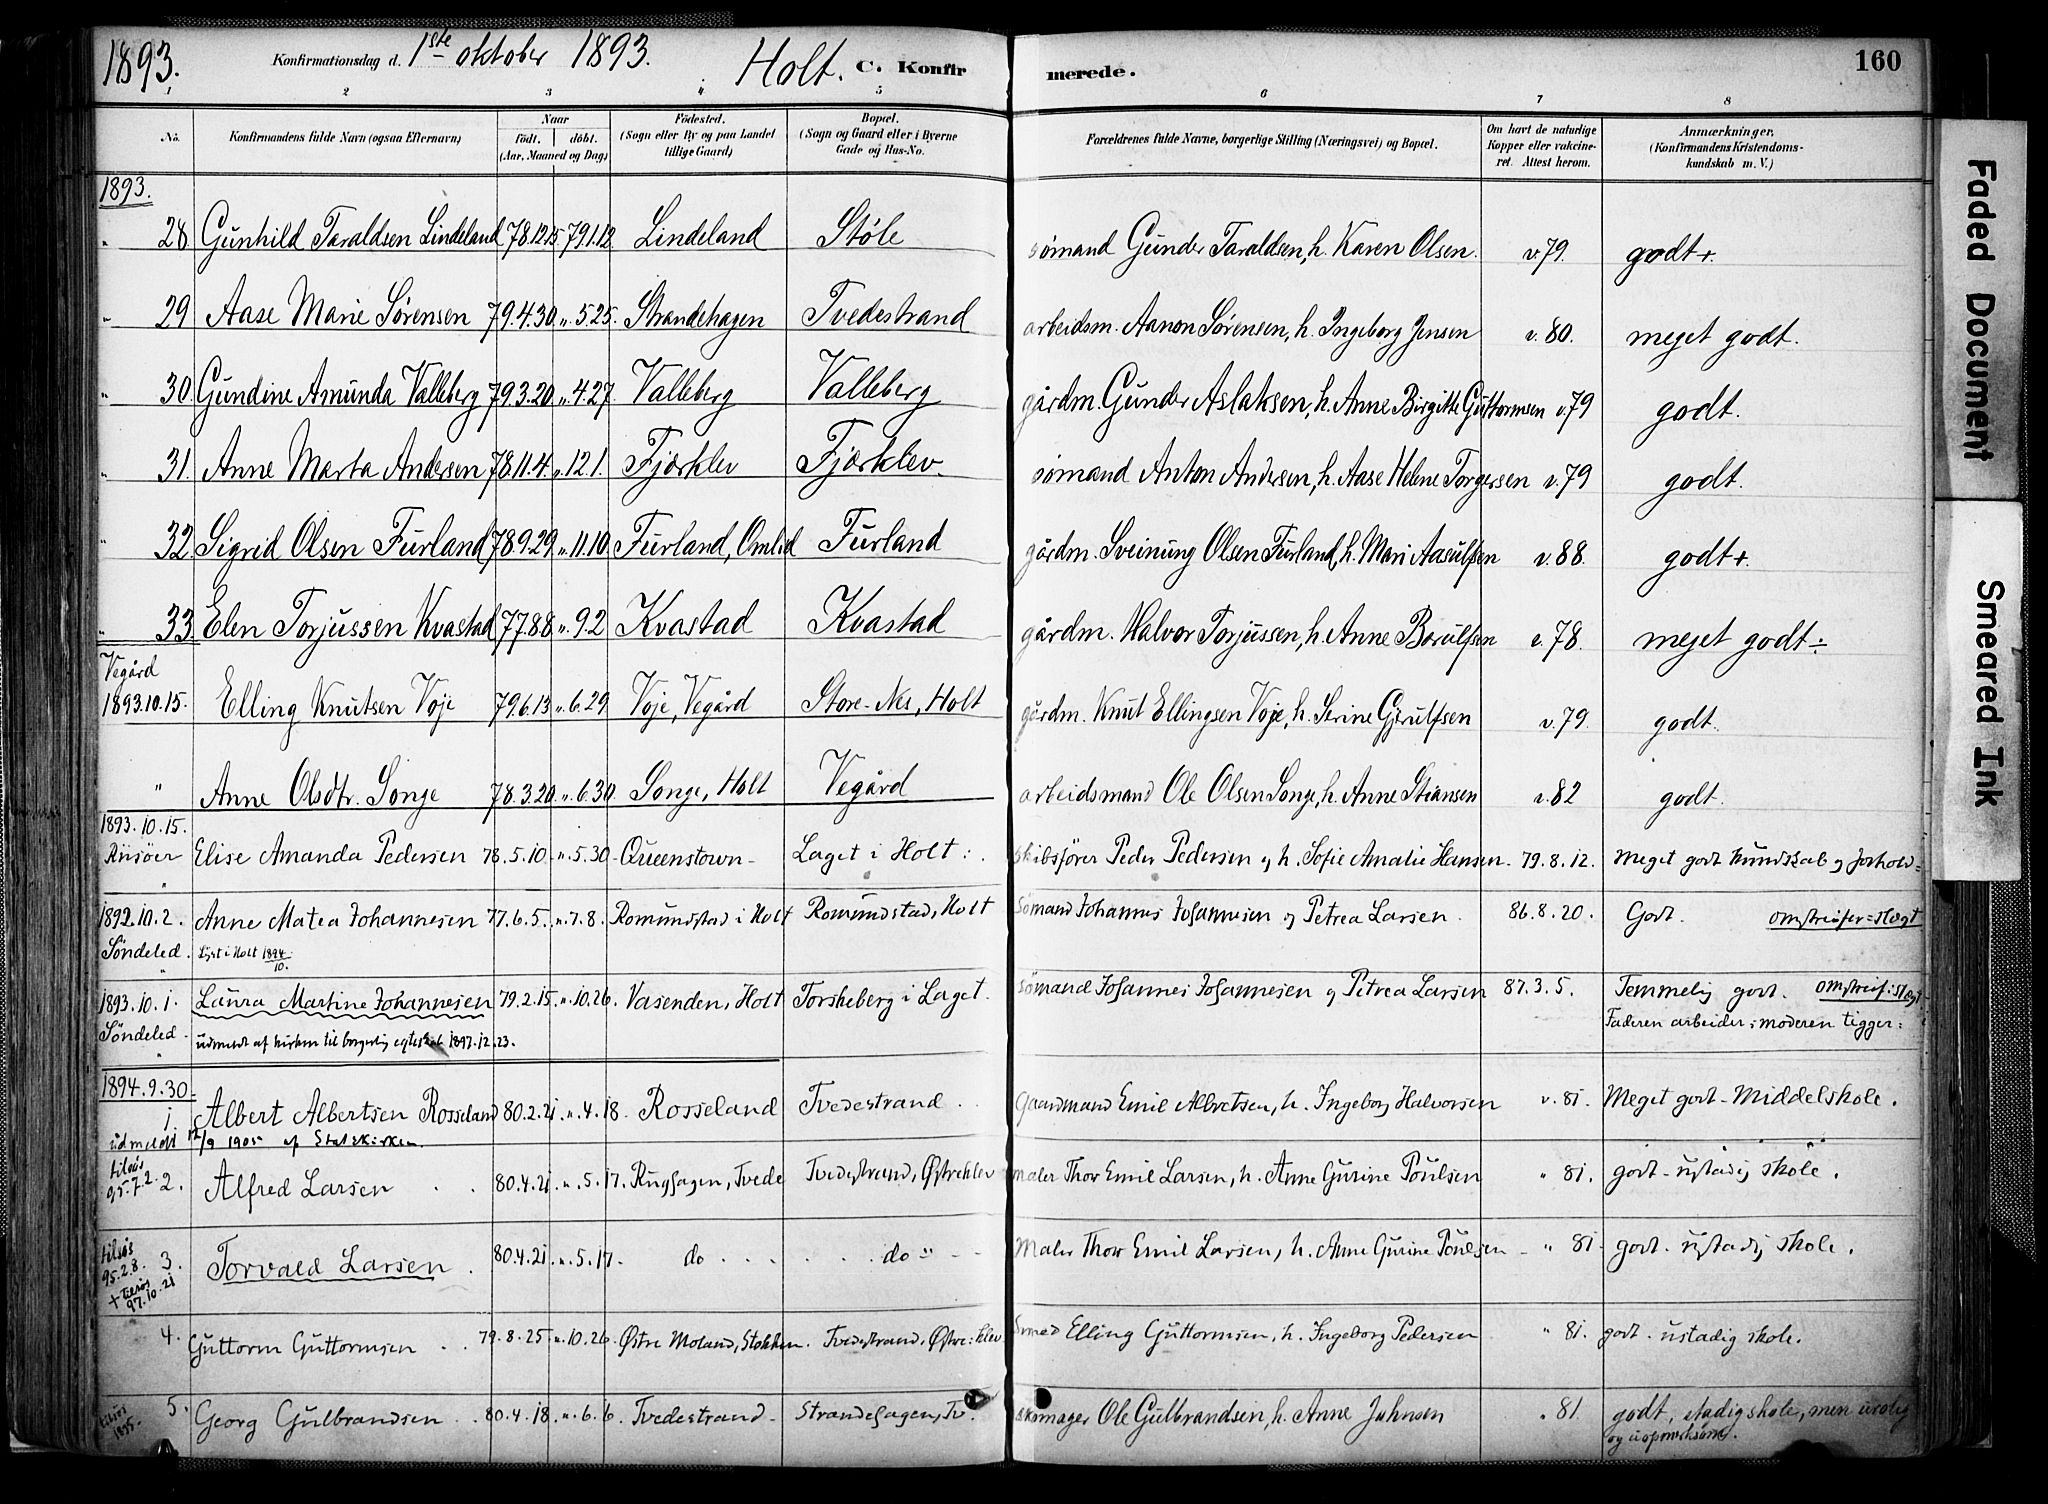 1893. Konfirmationsdag d. 1ste oktober 1893. Holt. C. Konfirmerede. 160
1 2 3 4 5 6 7 8
No. Konfirmandens fulde Navn (ogsaa Efternavn) Naar født. døbt. (Aar, Maaned og Dag) Fødested. (Sogn eller By og paa Landet tillige Gaard) Bopæl. (Sogn og Gaard eller i Byerne Gade og Hus-No. Forældrenes fulde Navne, borgerlige Stilling (Næringsvei) og Bopæl. Om havt de naturlige Kopper eller vakcineret. Attest herom. Anmærkninger. (Konfirmandens Kristendomskundskab m. V.)
1893.
" 28 Gunhild Taraldsen Lindeland 78.12.15 79.1.12 Lindeland Støle sømand Gunder Taraldsen, h. Karen Olsen. v. 79. godt+.
" 29 Aase Marie Sørensen 79.4.30 ". 5.25. Strandehagen Tvedestrand arbeidsm. Aanon Sørensen, h. Ingeborg Jensen v. 80. meget godt.
" 30 Gundine Amunda Valleberg 79.3.20 ". 4.27. Valleberg Valleberg gårdm. Gunder Aslaksen, h. Anne Birgitte Guttormsen v. 79 godt.
" 31. Anne Marta Andersen 78.11.4. ". 12.1. Fjærklev Fjærklev. sømand Anton Andersen, h. Aase Helene Torgersen v. 79 godt.
" 32 Sigrid Olsen Furland 78.9.29 ". 11.10. Furland, Omlid Furland gårdm. Sveinung Olsen Furland, h. Mari Aasulfsen v. 88. godt+.
" 33. Elen Torjussen Kvastad 77.8.8 ". 9.2 Kvastad Kvastad gårdm. Halvor Torjussen, h. Anne Borulfsen v. 78. meget godt÷
Vegård
1893.10.15. Elling Knutsen Voje 79.6.13 ". 6.29 Voje, Vegård Store-Nes, Holt gårdm. Knut Ellingsen Voje, h. Serine Gjerulfsen v. 79. godt.
" Anne Olsdtr. Songe 78.3.20 ". 6.30 Songe, Holt Vegård arbeidsmand Ole Olsen Songe, h. Anne Stiansen v. 82 godt.
1893.10.15.
Riisøer Elise Amanda Pedersen 78.5.10. ". 5.30 Queenstown Laget i Holt. skibsfører Peder Pedersen og h. Sofie Amalie Hansen. 79.8.12. Meget godt kundskab og forhold
1892.10.2. Anne Matea Johannesen 77.6.5. ". 7.8. Romundstad i Holt Romundstad, Holt sømand Johannes Johannesen og Petrea Larsen. 86.8.20. Godt. omstreifer=slægt
Søndeled. Lyst i Holt 1894/10.
1893.10.1. Laura Martine Johannesen 79.2.15. ". 10.26. Vasenden, Holt Torskeberg i Laget. sømand Johannes Johannesen og Petrea Larsen 87.3.5. Temmelig godt. omstreif:slægt
Søndeled udmeldt af kirken til borgerlig egteskab 1897.12.23. Faderen arbeider; moderen tigger:
1894.9.30.
1. Albert Albertsen Rosseland 80.2.21. ". 4.18. Rosseland Tvedestrand. Gaardmand Emil Albretsen, h. Ingeborg Halvorsen v. 81. Meget godt - Middelskole.
udmeldt 12/9 1905 af Statskirken.
tilsøs 95.7.2. 2. Alfred Larsen . . 80.4.21. ". 5.17. Runhagen, Tvede Tvedestrand, Østreklev Maler Thor Emil Larsen, h. Anne Gurine Poulsen " 81. godt - ustadig skole.
tilsøs 95.2.8. 3. Torvald Larsen . 80.4.21. ". 5.17. do . . . . . . do " - - Maler Thor Emil Larsen, h. Anne Gurine Poulsen - " 81. godt. ustadig skole.
+ tilsøs 97.10.21
4. Guttorm Guttormsen . . 79.8.25. ". 10.26. Østre Moland, Stokken. Tvedestrand, Østre:klev Smed Elling Guttormsen, h. Ingeborg Pedersen " 81. godt. ustadig skole.
tilsøs 1895. 5. Georg Gulbrandsen . . 80.4.18. ". 6.6. Tvedestrand. Strandehagen, Tv. skomager Ole Gulbrandsen, h. Anne Johnsen " 81. godt, stadig skole, men urolig
og uopmerksom.
Faded Document
Smeared Ink